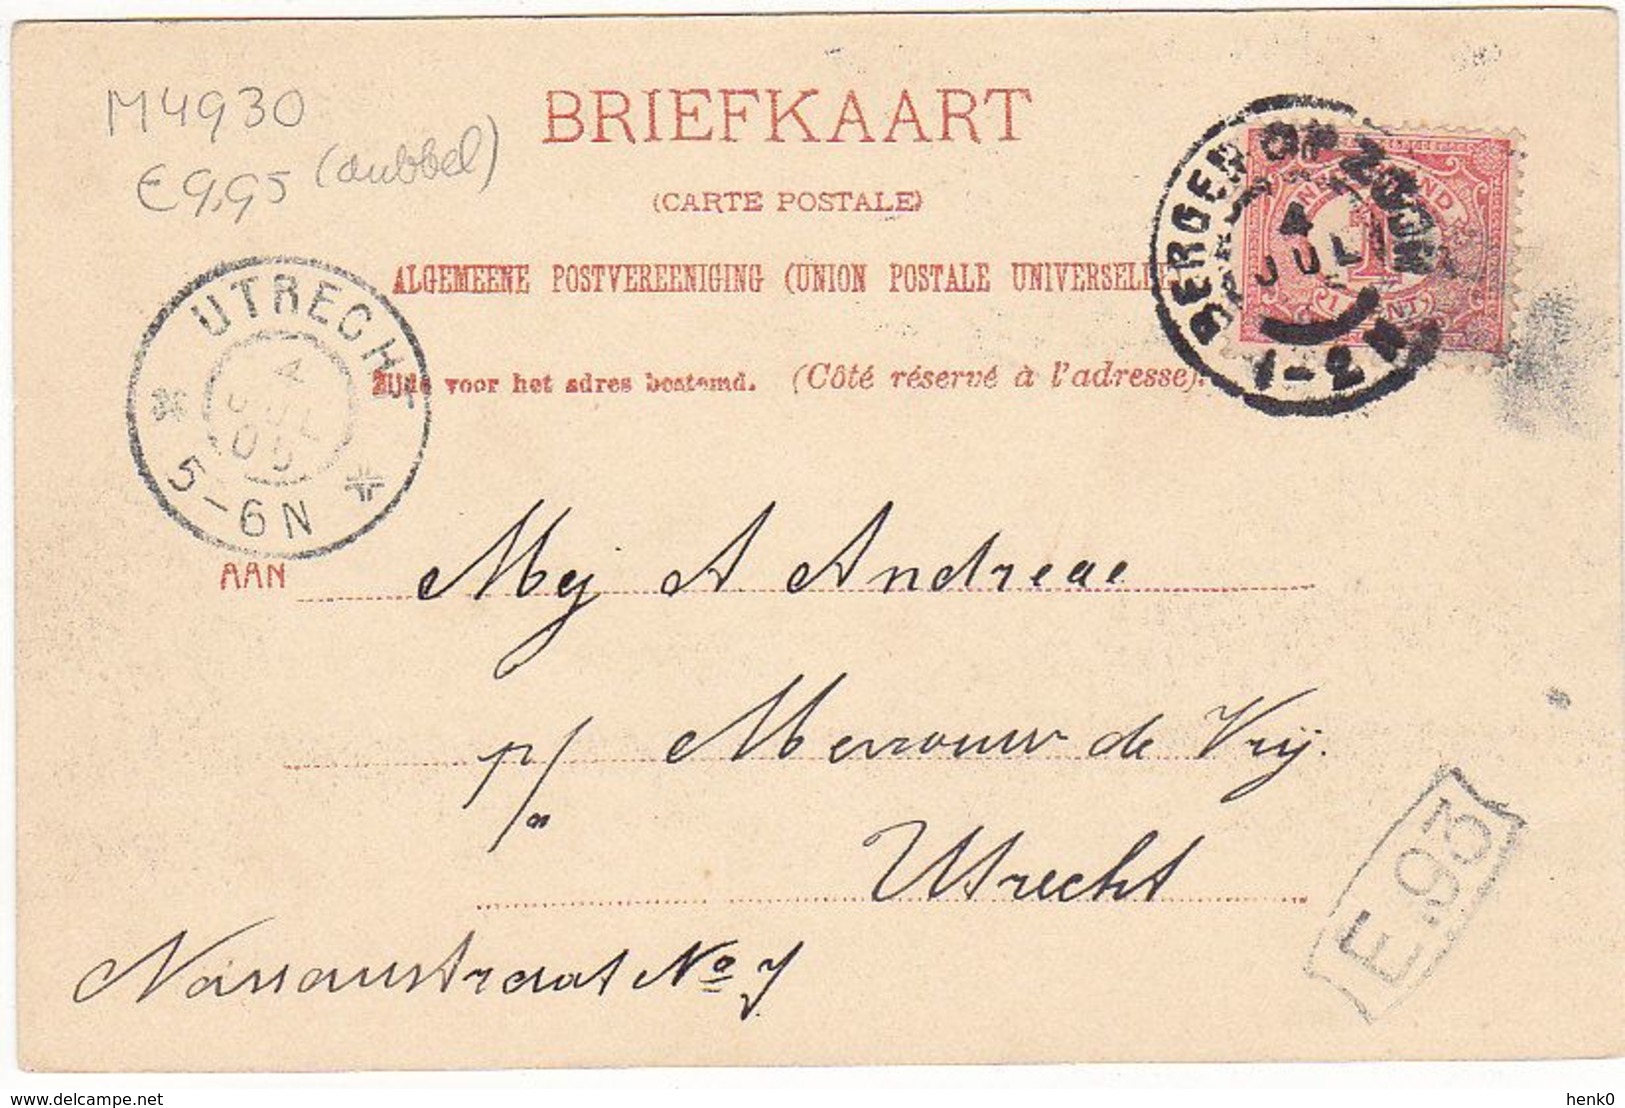 M4930
€9,95 (dubbel)
BRIEFKAART
(CARTE POSTALE)
ALGEMEENE POSTVEREENIGING (UNION POSTALE UNIVERSELLE
Zijde voor het adres bestemd. (Côté réservé à l'adresse).
BERGEN OP ZOOM
4
JUL
1-2 N
1 CENT
UTRECHT
4
JUL
05
5-6N
AAN
Mej A. Andreae
p/a Mevrouw de Vrij.
Utrecht
Nassaustraat No 7
E.93
www.delcampe.net
henk0